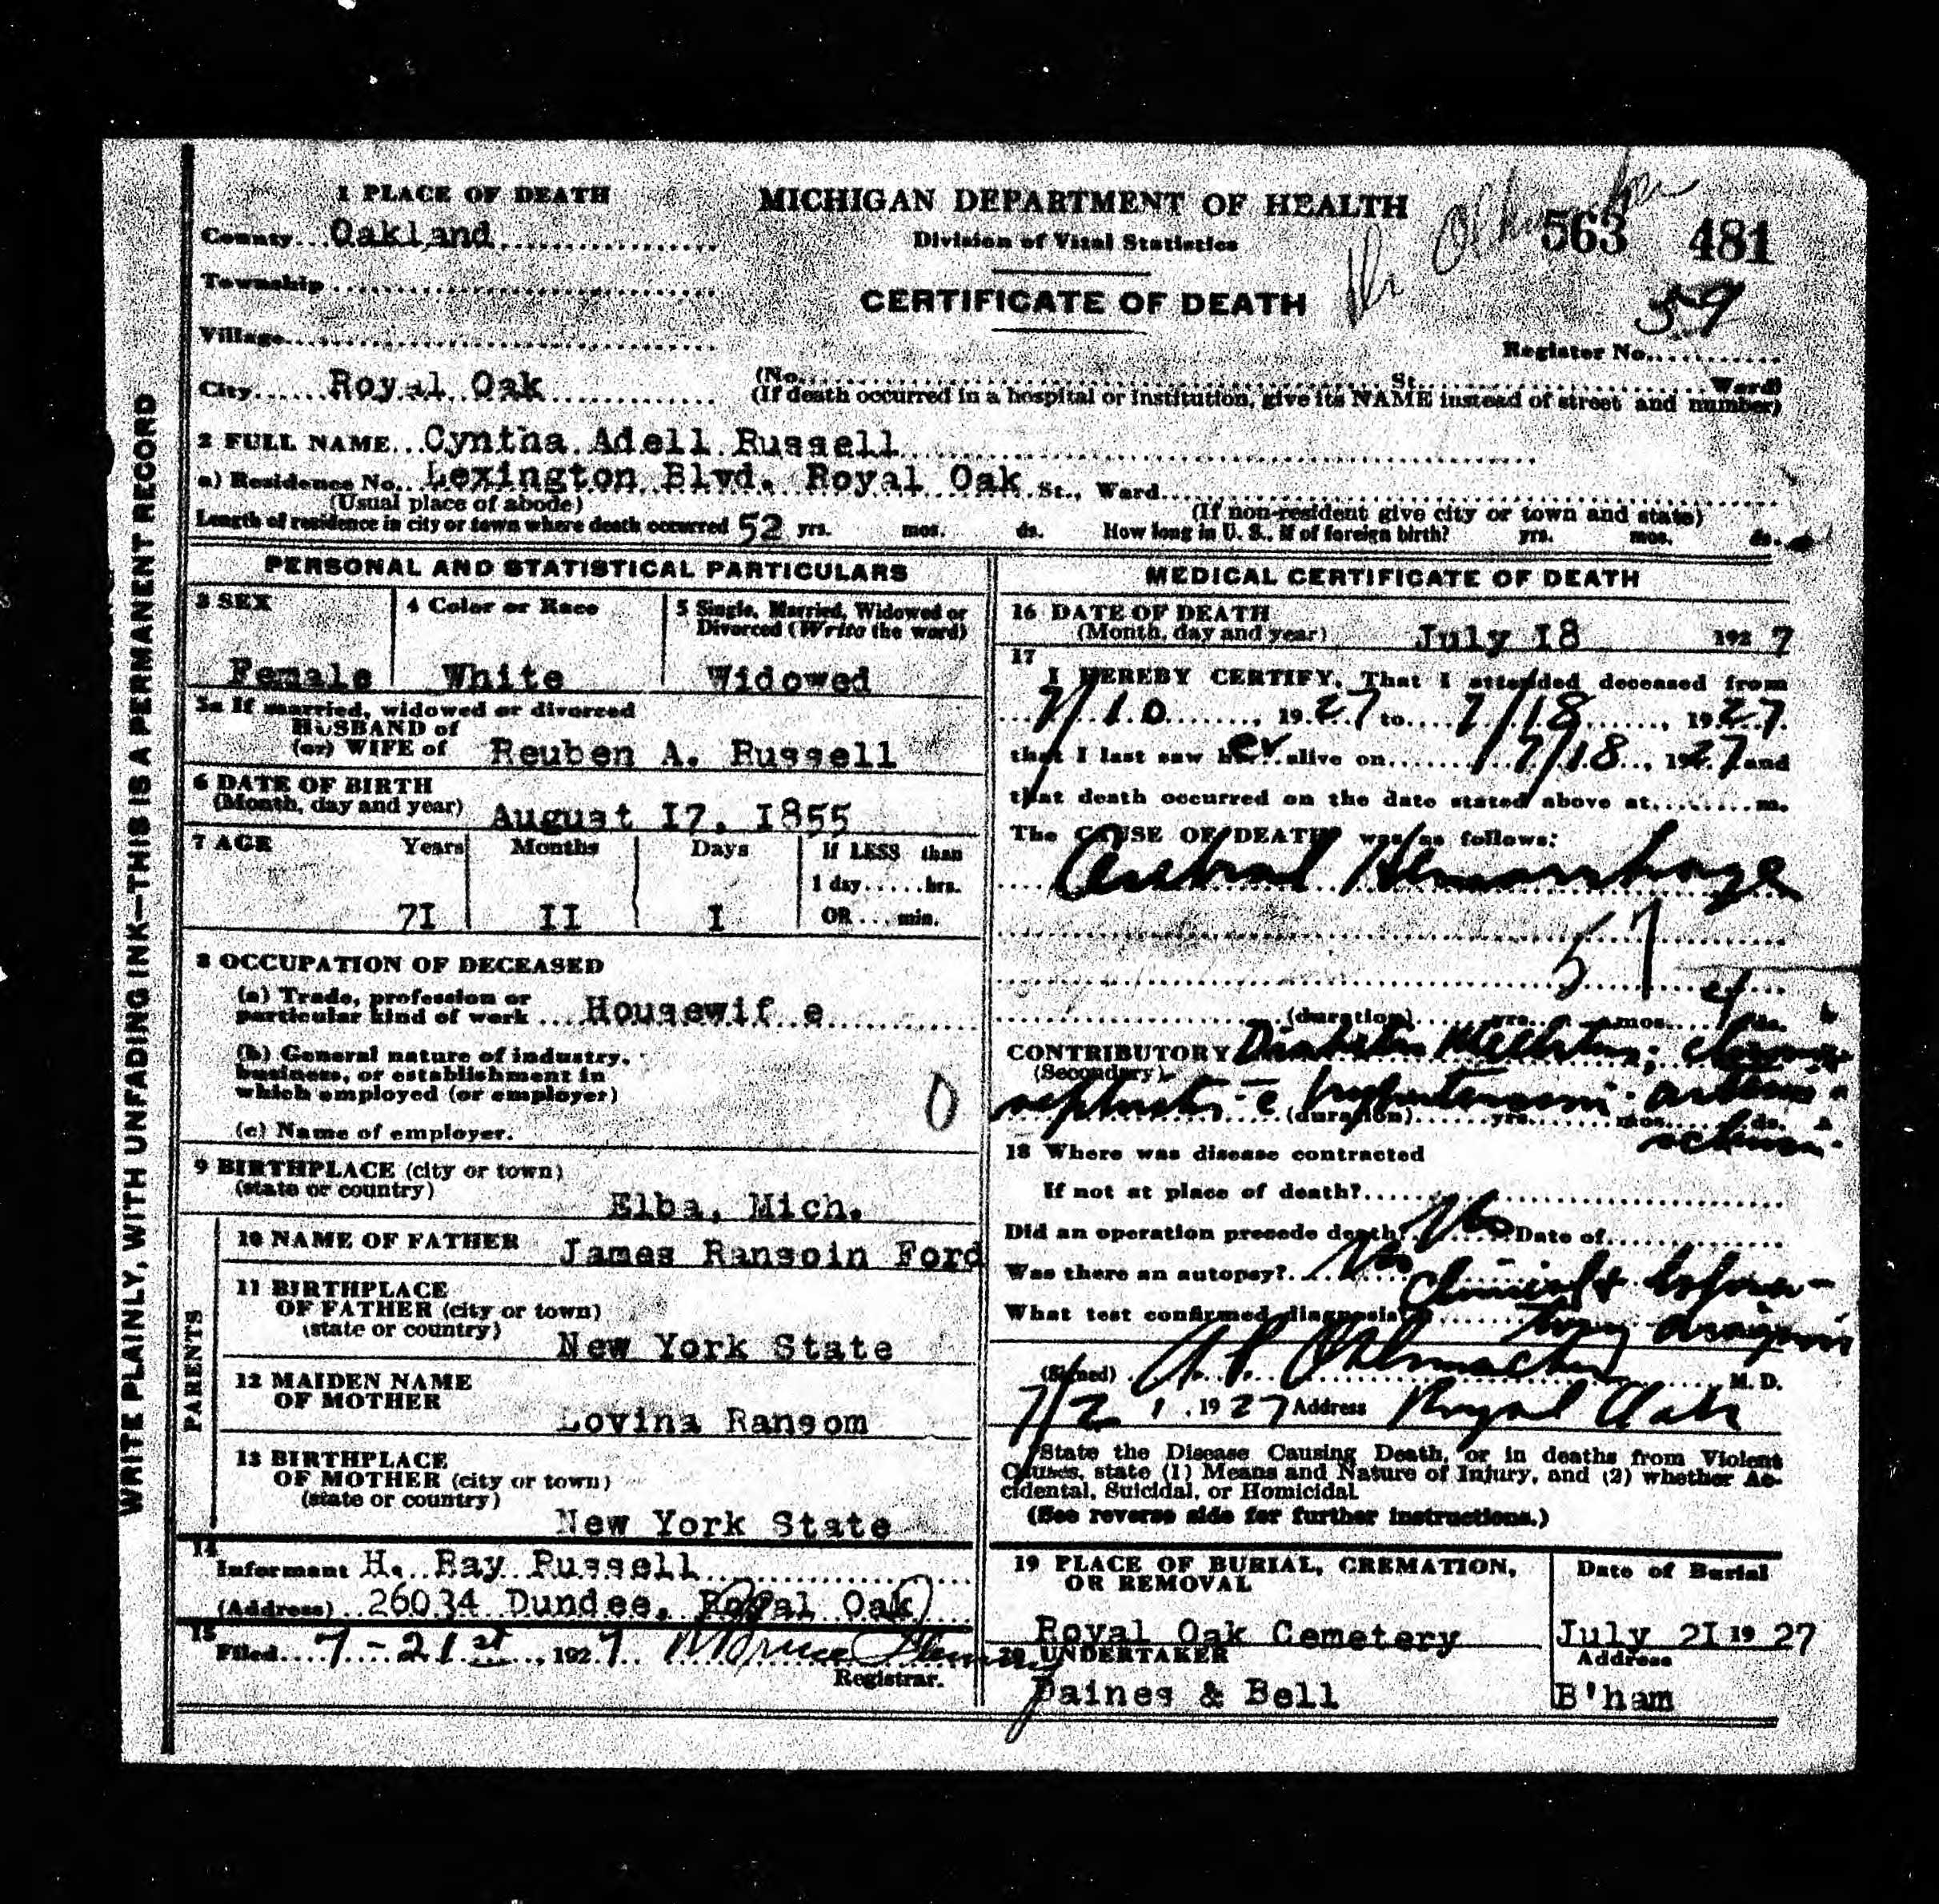 1 PLACE OF DEATH
MICHIGAN DEPARTMENT OF HEALTH
Division of Vital Statistics
CERTIFICATE OF DEATH
563 481
59
Register No.
County Oakland
Township
Village
City Royal Oak
(No. St. Ward)
(If death occurred in a hospital or institution, give its NAME instead of street and number)
2 FULL NAME Cyntha Adell Russell
a) Residence No. Lexington Blvd. Royal Oak St., Ward
(Usual place of abode) (If non-resident give city or town and state)
Length of residence in city or town where death occurred 52 yrs. mos. ds. How long in U. S., if of foreign birth? yrs. mos. ds.
WRITE PLAINLY, WITH UNFADING INK—THIS IS A PERMANENT RECORD
PERSONAL AND STATISTICAL PARTICULARS
3 SEX 4 Color or Race 5 Single, Married, Widowed or
Divorced (Write the word)
Female White Widowed
5a If married, widowed or divorced
HUSBAND of
(or) WIFE of Reuben A. Russell
6 DATE OF BIRTH
(Month, day and year) August I7, I855
7 AGE Years Months Days If LESS than
1 day.....hrs.
7I II I OR...min.
8 OCCUPATION OF DECEASED
(a) Trade, profession or
particular kind of work Housewif e
(b) General nature of industry,
business, or establishment in
which employed (or employer) 0
(c) Name of employer.
9 BIRTHPLACE (city or town)
(state or country) Elba, Mich.
PARENTS
10 NAME OF FATHER James Ransoin Ford
11 BIRTHPLACE
OF FATHER (city or town)
(state or country) New York State
12 MAIDEN NAME
OF MOTHER Lovina Ransom
13 BIRTHPLACE
OF MOTHER (city or town)
(state or country) New York State
14
Informant H. Ray Russell
(Address) 26034 Dundee, Royal Oak
15
Filed 7-21st, 1927
Registrar.
MEDICAL CERTIFICATE OF DEATH
16 DATE OF DEATH
(Month, day and year) July I8 1927
17
I HEREBY CERTIFY, That I attended deceased from
7/10, 1927 to 7/18, 1927.
that I last saw her alive on 7/18, 1927 and
that death occurred on the date stated above at m.
The CAUSE OF DEATH was as follows:
Cerebral Hemorrhage
57
(duration) yrs. mos. ds.
CONTRIBUTORY Diabetes Mellitus; chronic
(Secondary)
nephritis c hypertension arterio
(duration) yrs. mos. ds.
18 Where was disease contracted
If not at place of death?
Did an operation precede death? No Date of
Was there an autopsy? No
Clinical & labora-
What test confirmed diagnosis? tory
(Signed) M. D.
7/21, 1927 Address Royal Oak
State the Disease Causing Death, or in deaths from Violent
Causes, state (1) Means and Nature of Injury, and (2) whether Ac-
cidental, Suicidal, or Homicidal.
(See reverse side for further instructions.)
19 PLACE OF BURIAL, CREMATION, Date of Burial
OR REMOVAL
Royal Oak Cemetery July 2I 19 27
20 UNDERTAKER Address
Paines & Bell B'ham